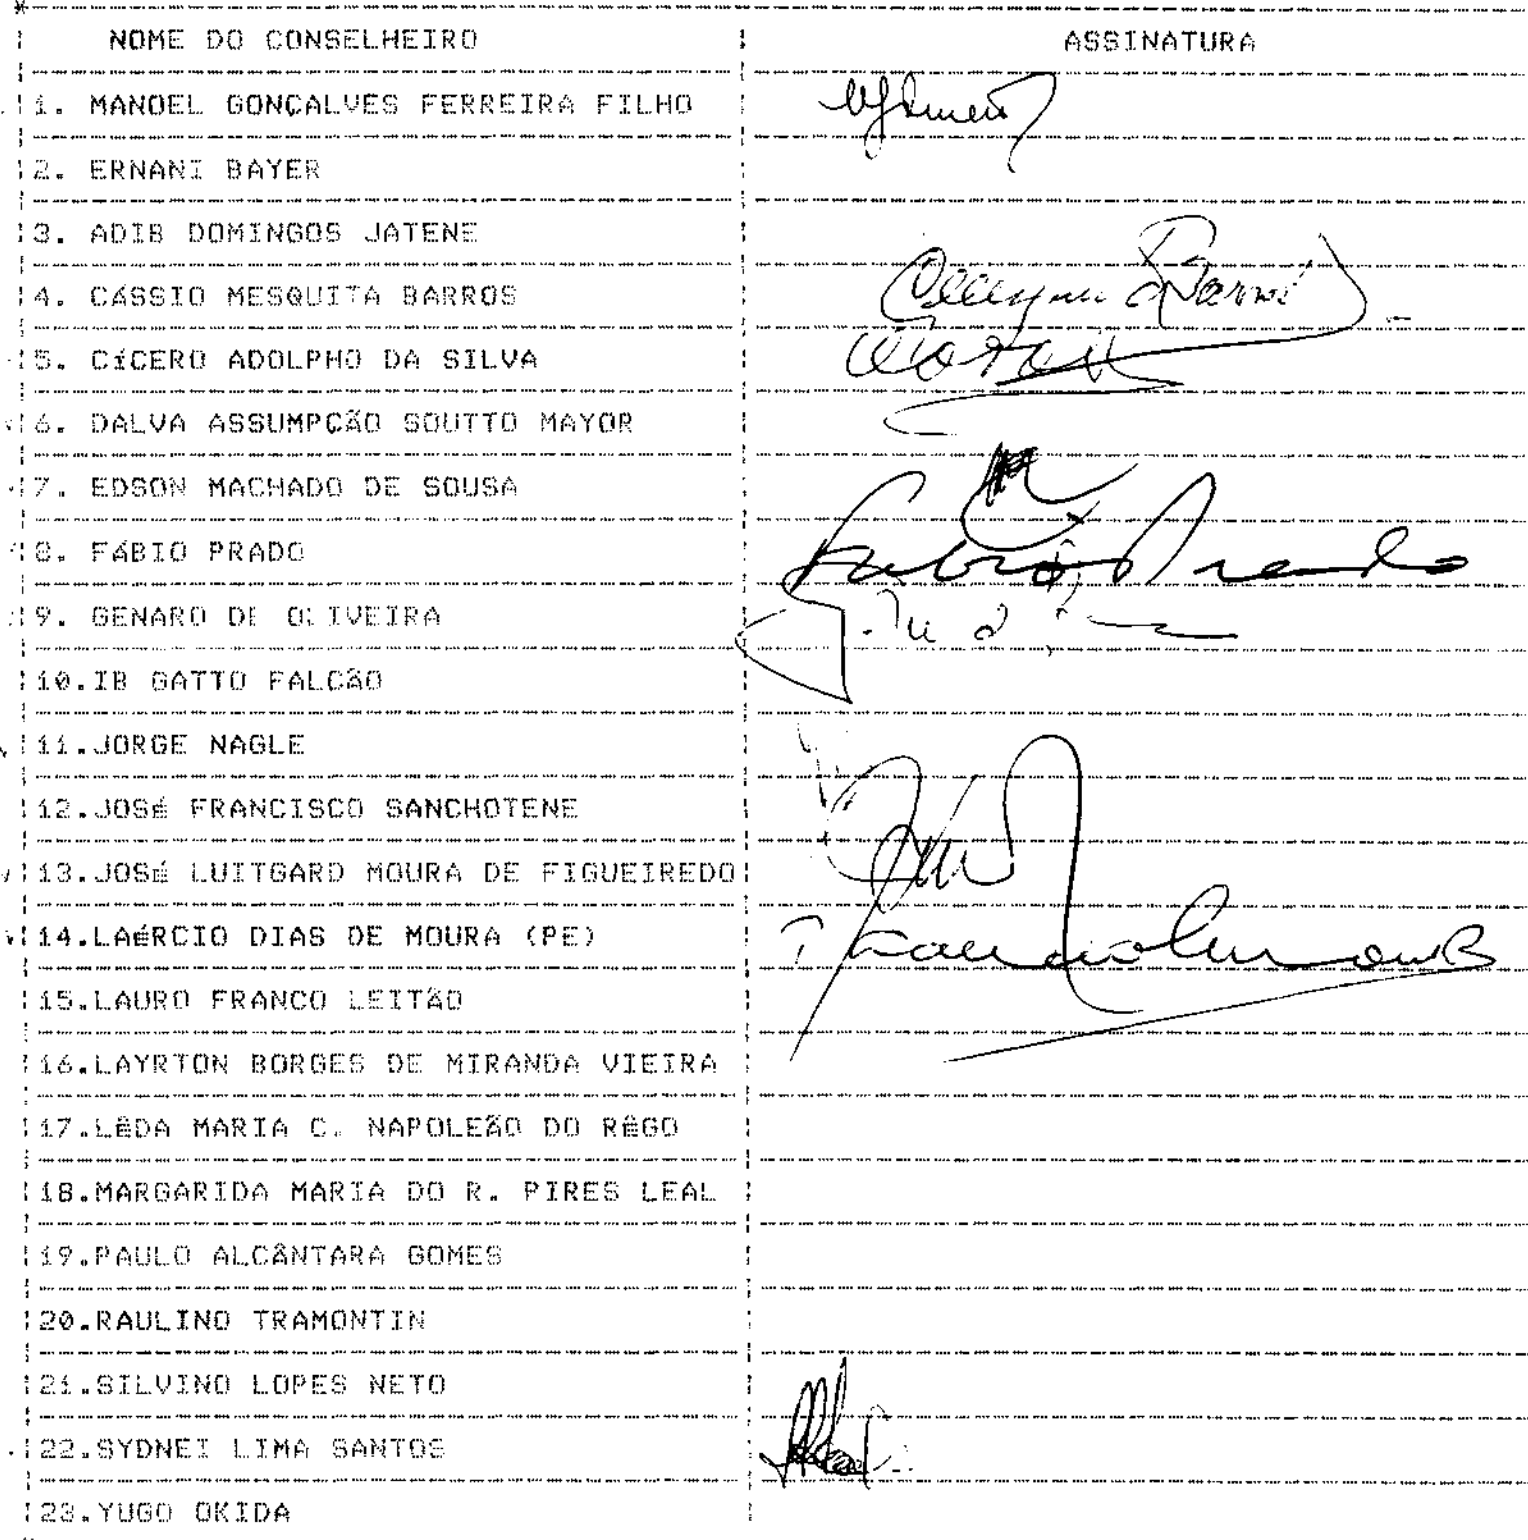 NOME DO CONSELHEIRO ASSINATURA
1. MANOEL GONÇALVES FERREIRA FILHO
2. ERNANI BAYER
3. ADIB DOMINGOS JATENE
4. CÁSSIO MESQUITA BARROS
5. CÍCERO ADOLPHO DA SILVA
6. DALVA ASSUMPCÃO SOUTTO MAYOR
7. EDSON MACHADO DE SOUSA
8. FÁBIO PRADO Fabio Prado
9. GENARO DE OLIVEIRA
10.IB GATTO FALCÃO
11.JORGE NAGLE
12.JOSÉ FRANCISCO SANCHOTENE
13.JOSÉ LUITGARD MOURA DE FIGUEIREDO
14.LAÉRCIO DIAS DE MOURA (PE)
15.LAURO FRANCO LEITÃO
16.LAYRTON BORGES DE MIRANDA VIEIRA
17.LÊDA MARIA C. NAPOLEÃO DO RÊGO
18.MARGARIDA MARIA DO R. PIRES LEAL
19.PAULO ALCÂNTARA GOMES
20.RAULINO TRAMONTIN
21.SILVINO LOPES NETO
22.SYDNEI LIMA SANTOS
23.YUGO OKIDA